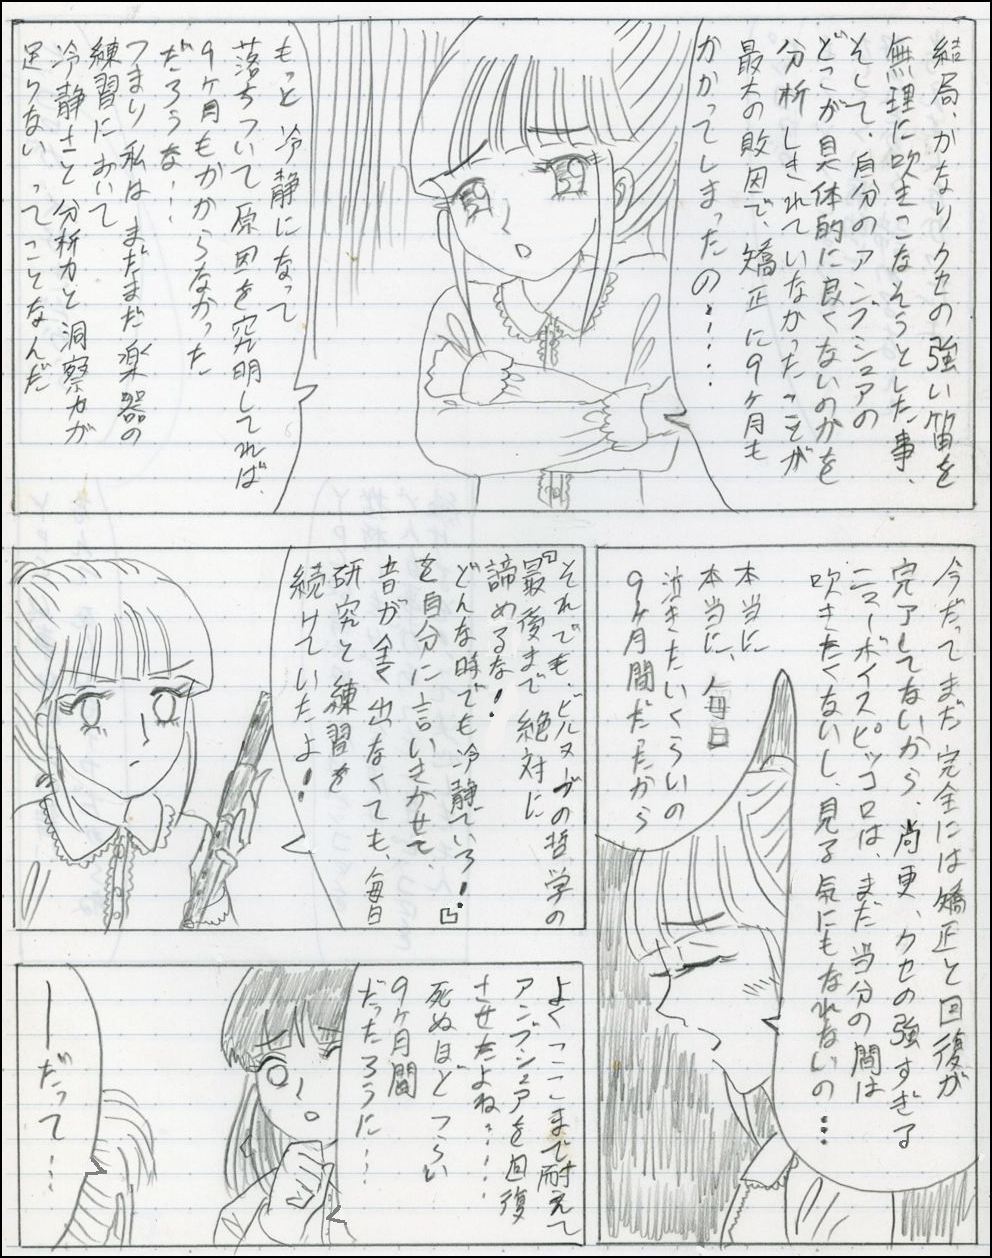 結局、かなりクセの強い笛を
無理に吹きこなそうとした事、
そして、自分のアンブシュアの
どこが具体的に良くないのかを
分析しきれていなかったことが
最大の敗因で、矯正に9ヶ月も
かかってしまったの・・・・
もっと冷静になって
落ちついて原因を究明してれば、
9ヶ月もかからなかった
だろうな・・・
つまり私はまだまだ楽器の
練習において
冷静さと分析力と洞察力が
足らないってことなんだ
今だってまだ完全には矯正と回復が
完了してないから、尚更、クセの強すぎる
ニューボイスピッコロは、まだ当分の間は
吹きたくないし、見る気にもなれないの・・・
本当に
本当に、毎日
泣きたいくらいの
9ヶ月間だったから
それでも、ビルヌーヴの哲学の
『最後まで絶対に
諦めるな!
どんな時でも冷静でいろ!』
を自分に言いきかせて、
音が全く出なくても、毎日
研究と練習を
続けていたよ!
よくここまで耐えて
アンブシュアを回復
させたよね・・・・
死ぬほどつらい
9ヶ月間
だったろうに・・・
―だって・・・